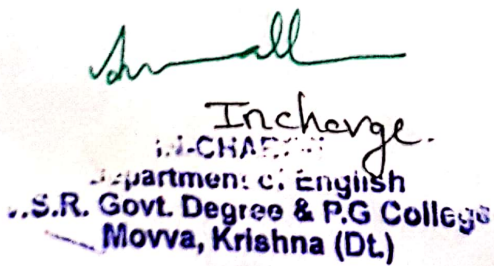 Incharge.
IN-CHARGE
Department of English
.S.R. Govt. Degree & P.G College
Movva, Krishna (Dt.)